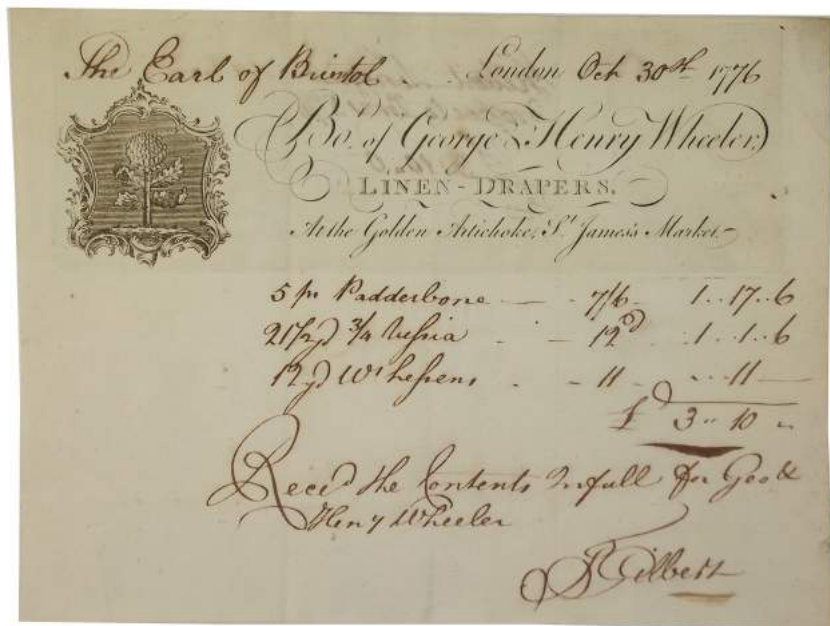 The Earl of Bristol . . London Oct 30th 1776
Bo. of George & Henry Wheeler,
LINEN-DRAPERS.
At the Golden Artichoke, St. James's Market.
5 ps Padderbone — - 7/6 - 1..17..6
21½ yd ¾ - 12d. 1..1..6
12 yd Wt hessens . - 11 - ...11 —
£ 3..10 ..
Reced the Contents In full for Geo &
Heny Wheeler
S Gilbert